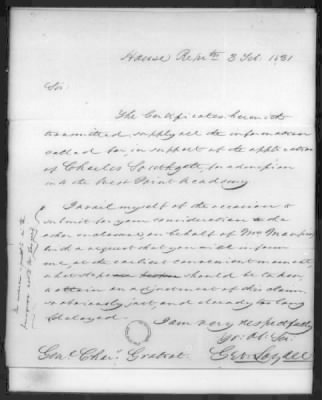 House Repves 3 Feb. 1831
Sir.
The Certificates herewith
transmitted supply all the information
called for, in support of the application
of Charles Southgate, for admission
into the West Point Academy.
I avail myself of the occasion to
submit for your consideration the
other enclosure, on behalf of Mr
and a request that you will inform
me, at the earliest convenient moment,
what steps should be taken,
to obtain an adjustment of this claim,
so obviously just, and already too long
delayed.
I am very respectfully
Yr. Ob. Sr.
Genl. Chas. Gratiot.
Geo. Loyall